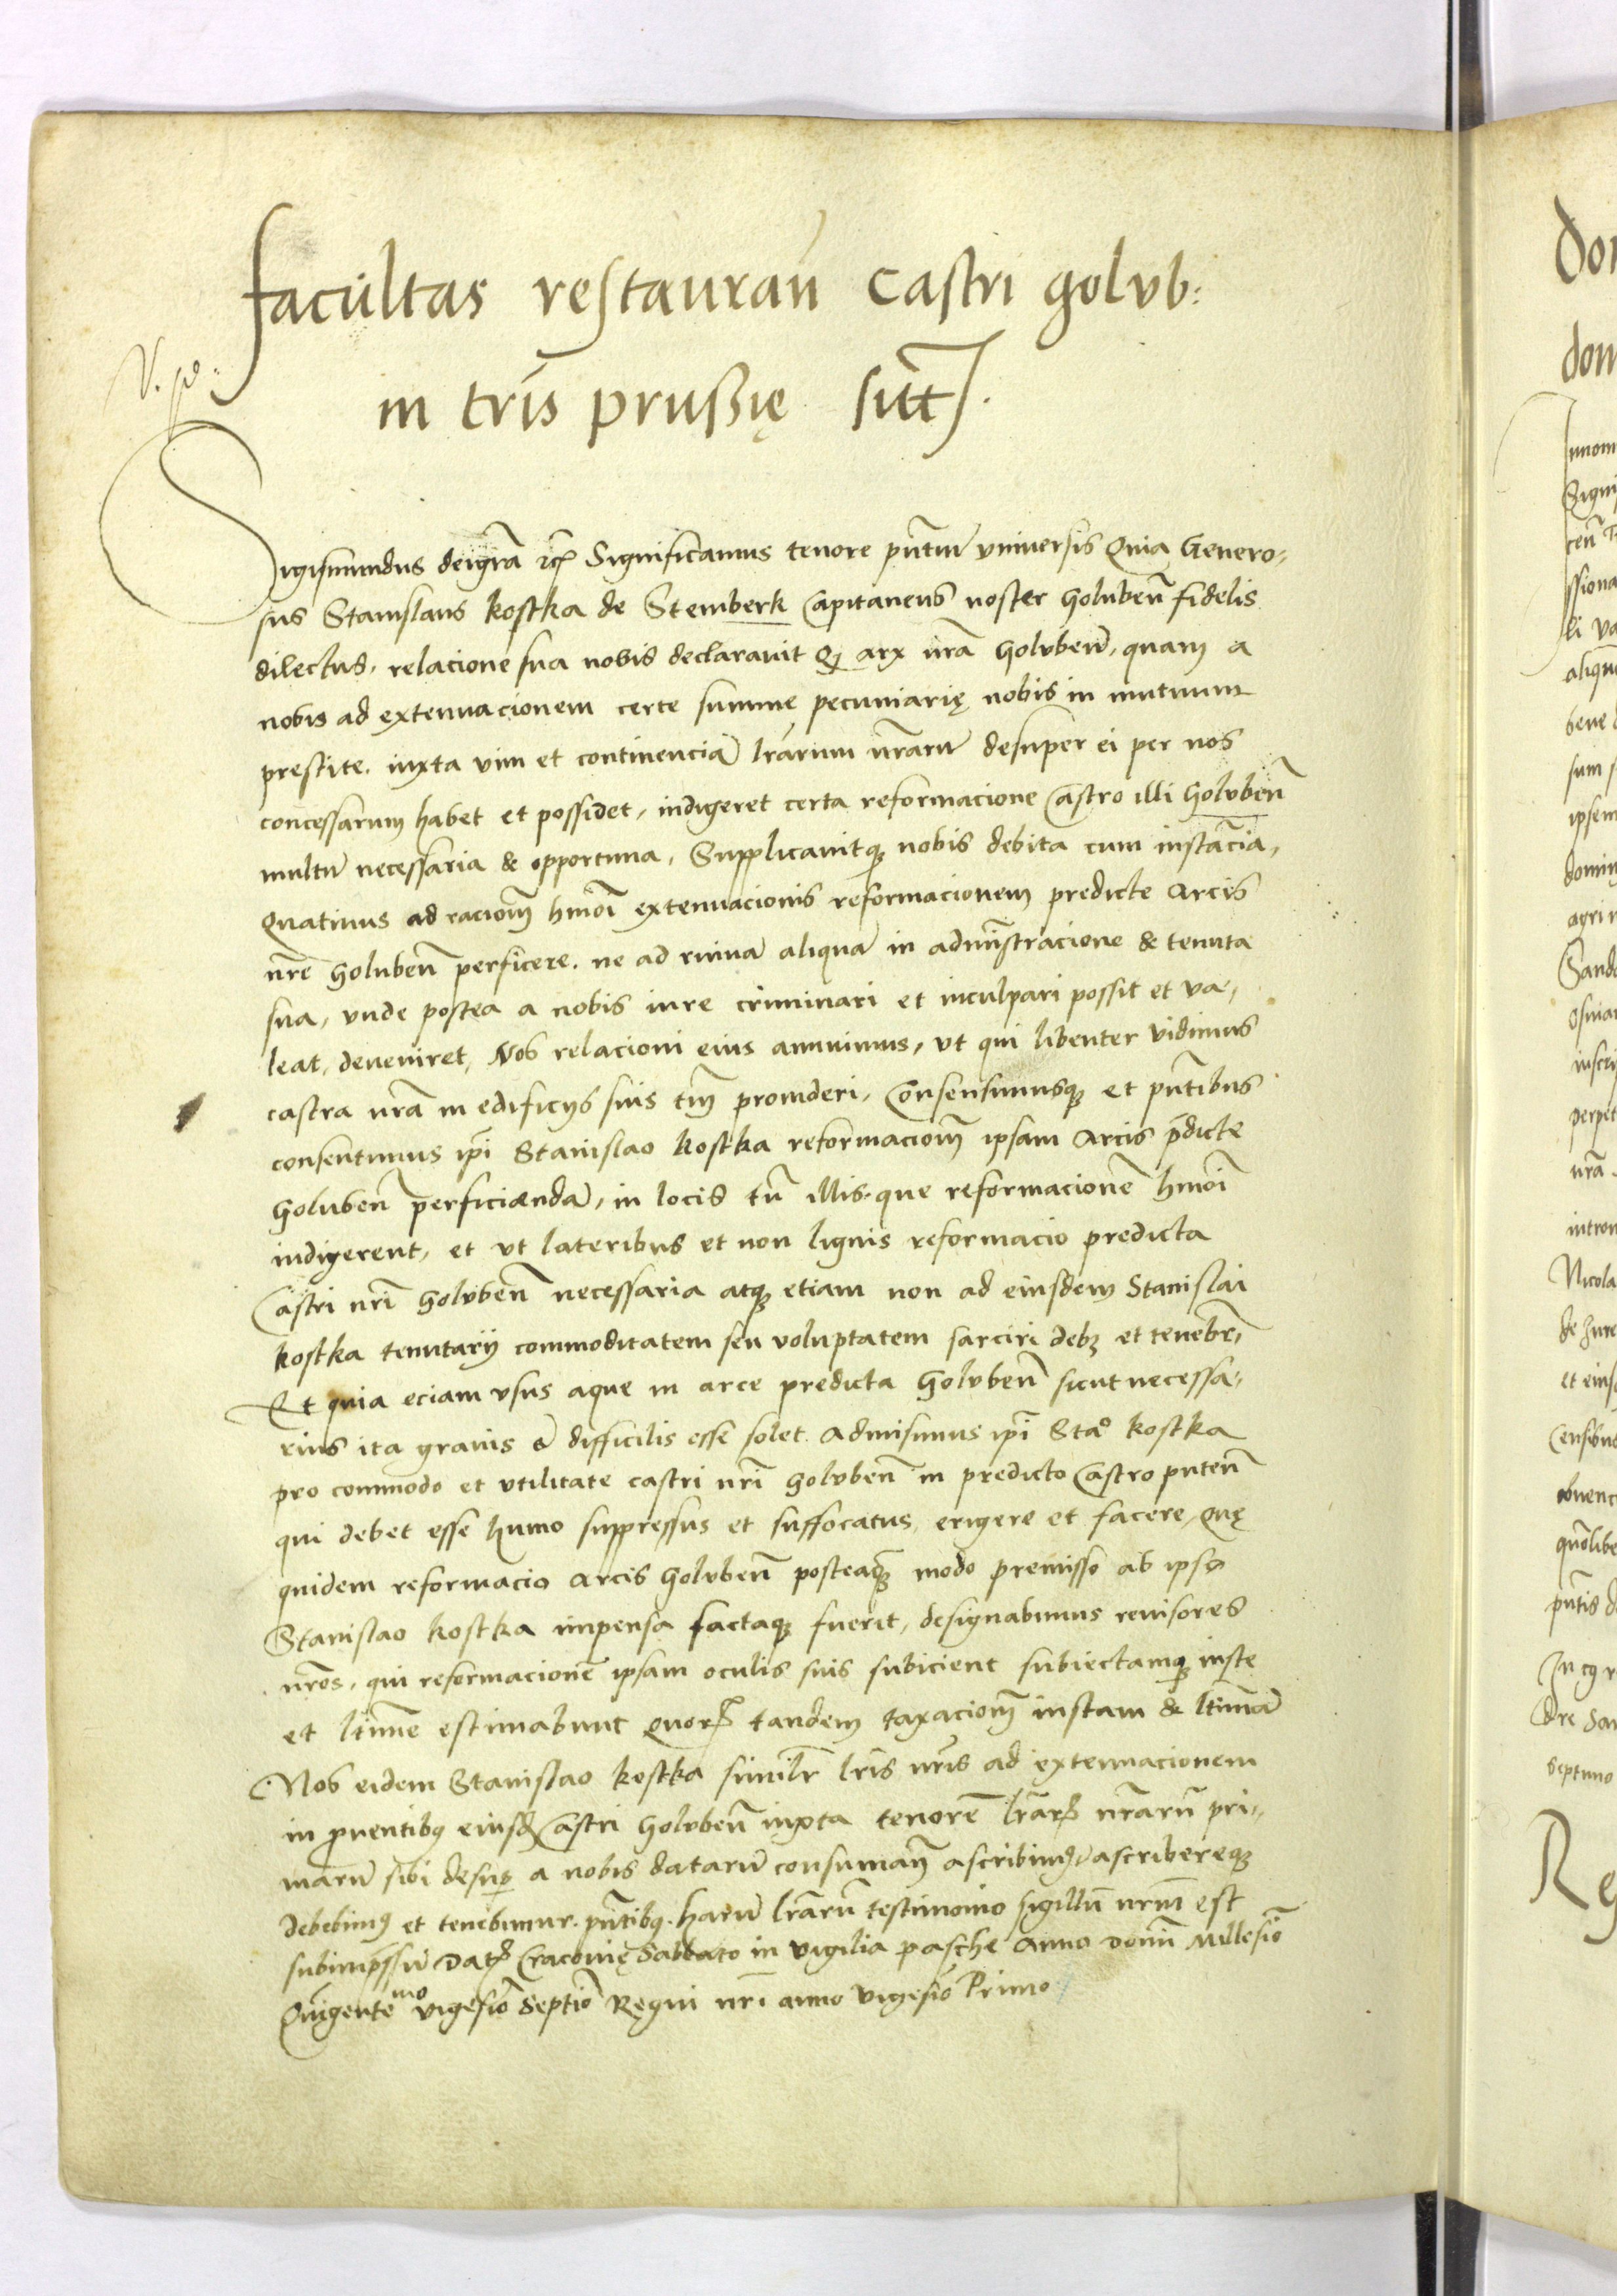 facultas restauran̄ Castri golub:
in tr̄is prussię sitt.
V. sp.
Sigismundus dei gr̄a etc Significamus tenore pn̄tiu̅ vniversis Quia Genero,
sus Stanislaus kostka de Stemberk Capitaneus noster Goluben̄ fidelis
dilectus, relacione sua nobis declarauit Q arx nr̄a Goluben̄, quam a
nobis ad extenuacionem certe summe pecuniarię nobis in mutuum
prestite. iuxta vim et continencia̅ lr̄arum nr̄aru̅ desuper ei per nos
concessarum habet et possidet, indigeret certa reformacione Castro illi Goluben̄
multu̅ necessaria & opportuna, Supplicauitq̨ nobis debita cum insta̅cia,
Quatinus ad racion̄ hmōi extenuacionis reformacionem predicte Arcis
nr̄e Goluben̄ perficere. ne ad ruina̅ aliqua̅ in admi̅stracione & tenuta
sua, vnde postea a nobis iure criminari et inculpari possit et va,
leat, deveniret, Nos relacioni eius annuimus, vt qui libenter vidimus
castra nr̄a in edificijs suis tm̄ prouideri, Consensimusq̨ et pn̄tibus
consentimus ip̄i Stanislao kostka reformacion̄ ipsam Arcis p̄dicte
Goluben̄ perficienda̅, in locis tn̄ illis. que reformacione̅ hmōi
indigerent, et vt lateribus et non lignis reformacio predicta
Castri nr̄i Goluben̄ necessaria atq̨ etiam non ad eiusdem Stanislai
kostka tenutarij commoditatem seu voluptatem sarciri debȝ et tenebr̄,
Et quia eciam vsus aque in arce predicta Goluben̄ sicut necessa,
rius ita grauis & difficilis esse solet. Admisimus ip̄i Sta° kostka
pro commodo et vtilitate castri nr̄i Goluben̄ in predicto Castro puteu̅
qui debet esse humo suppressus et suffocatus, erigere et facere, Quę
quidem reformacio Arcis Goluben̄ posteaq̨ modo premisso ab ipso
Stanislao kostka impensa factaq̨ fuerit, designabimus reuisores
nr̄os, qui reformacione̅ ipsam oculis suis subicient subiectamq̨ iuste
et ltim̄e estimabunt Quor̨ tandem taxacion̄ iustam & ltim̄a̅
Nos eidem Stanislao kostka similr̄ lr̄is nr̄is ad extenuacionem
in prouentibȝ eiusd̨ Castri Goluben̄ iuxta tenore̅ lr̄ar̨ nr̄aru̅ pri,
maru̅ sibi desup̱ a nobis dataru̅ consuman̄ ascribimȝ ascribereq̨
debebimȝ et tenebimur. pn̄tibȝ. Haru̅ lr̄aru̅ testimonio sigillu̅ nr̄m est
subimp̄ssu̅ Dat̨ Cracovię Sabbato in vigilia pasche Anno Domi̅ Millesi̅o
Qui̅gentemo vigesi̅o Septi̅o Regni nr̄i anno vigesi̅o Primo